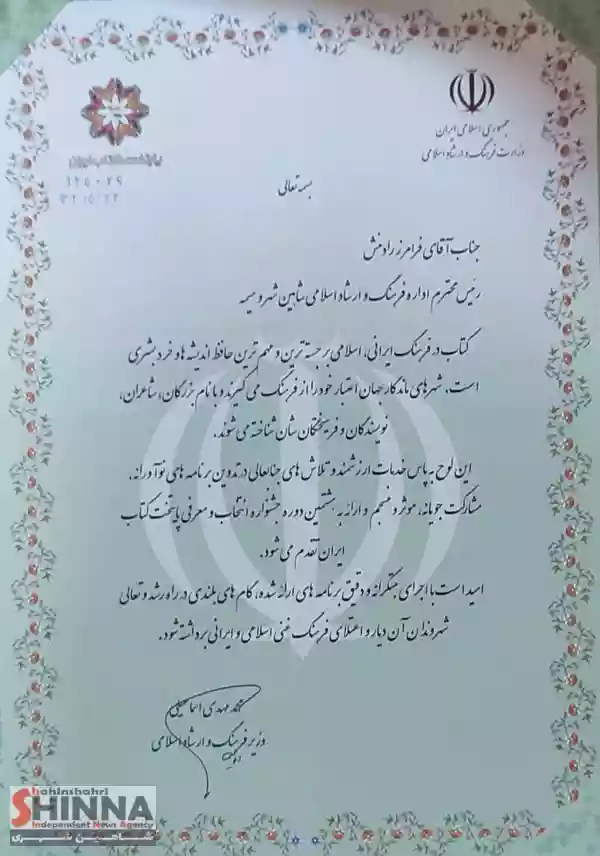 جمهوری اسلامی ایران
وزارت فرهنگ و ارشاد اسلامی
بسمه تعالی
جناب آقای فرامرز رادمنش
رئیس محترم اداره فرهنگ و ارشاد اسلامی شاهین شهر و میمه
کتاب در فرهنگ ایرانی، اسلامی برجسته ترین و مهم ترین حافظ اندیشه ها و خرد بشری
است. شهرهای ماندگار جهان اعتبار خود را از فرهنگ می گیرند و با نام بزرگان، شاعران،
نویسندگان و فرهیختگان شان شناخته می شوند.
این لوح به پاس خدمات ارزشمند و تلاش های جنابعالی در تدوین برنامه های نوآورانه،
مشارکت جویانه، موثر و منسجم و ارائه به هشتمین دوره جشنواره انتخاب و معرفی پایتخت کتاب
ایران تقدیم می شود.
امید است با اجرای مبتکرانه و دقیق برنامه های ارائه شده، گام های بلندی در راه رشد و تعالی
شهروندان آن دیار و اعتلای فرهنگ غنی اسلامی و ایرانی برداشته شود.
محمد مهدی اسماعیلی
وزیر فرهنگ و ارشاد اسلامی
Shahinshahri
SHINNA
Independent News Agency
شاهین شهری